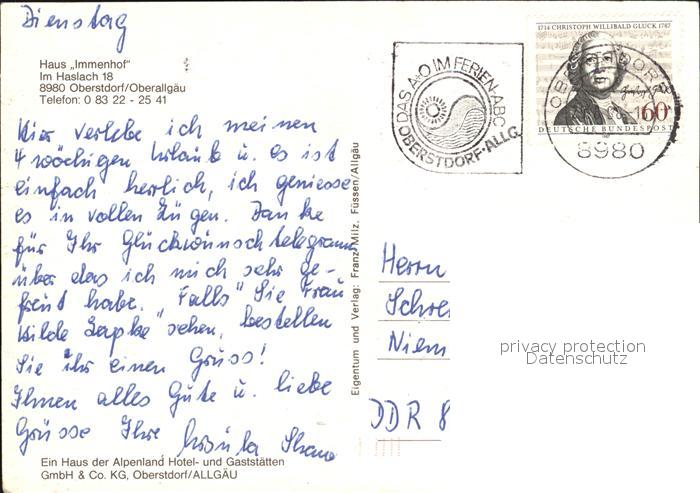 Dienstag
Haus „Immenhof"
Im Haslach 18
8980 Oberstdorf/Oberallgäu
Telefon: 0 83 22 - 25 41
Hier verlebe ich meinen
4 wöchigen Urlaub u. es ist
einfach herrlich, ich geniesse
es in vollen Zügen. Danke
für Ihr Glückwunschtelegramm
über das ich mich sehr ge-
freut habe. "Falls" Sie Frau
Hilde sehen, bestellen
Sie ihr einen Gruss!
Ihnen alles Gute u. liebe
Grüsse Ihre Ursula
Ein Haus der Alpenland Hotel- und Gaststätten
GmbH & Co. KG, Oberstdorf/ALLGÄU
Eigentum und Verlag: Franz Milz, Füssen/Allgäu
DAS A+O IM FERIEN-ABC
OBERSTDORF-ALLG.
1714 CHRISTOPH WILLIBALD GLUCK 1787
60
DEUTSCHE BUNDESPOST
OBERSTDORF
8980
Herrn
Niem
DDR 8
privacy protection
Datenschutz